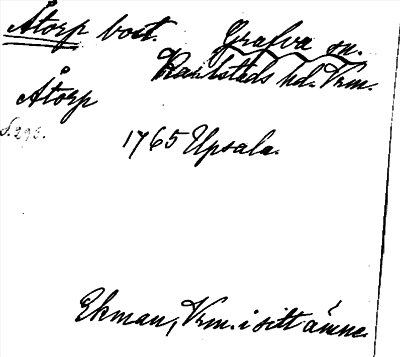 Åtorp bost. Grafva sn.
Karlstads hd. Vrm.
Åtorp
S. 295.
1765 Upsala.
Ekman, Vrm. i sitt ämne.